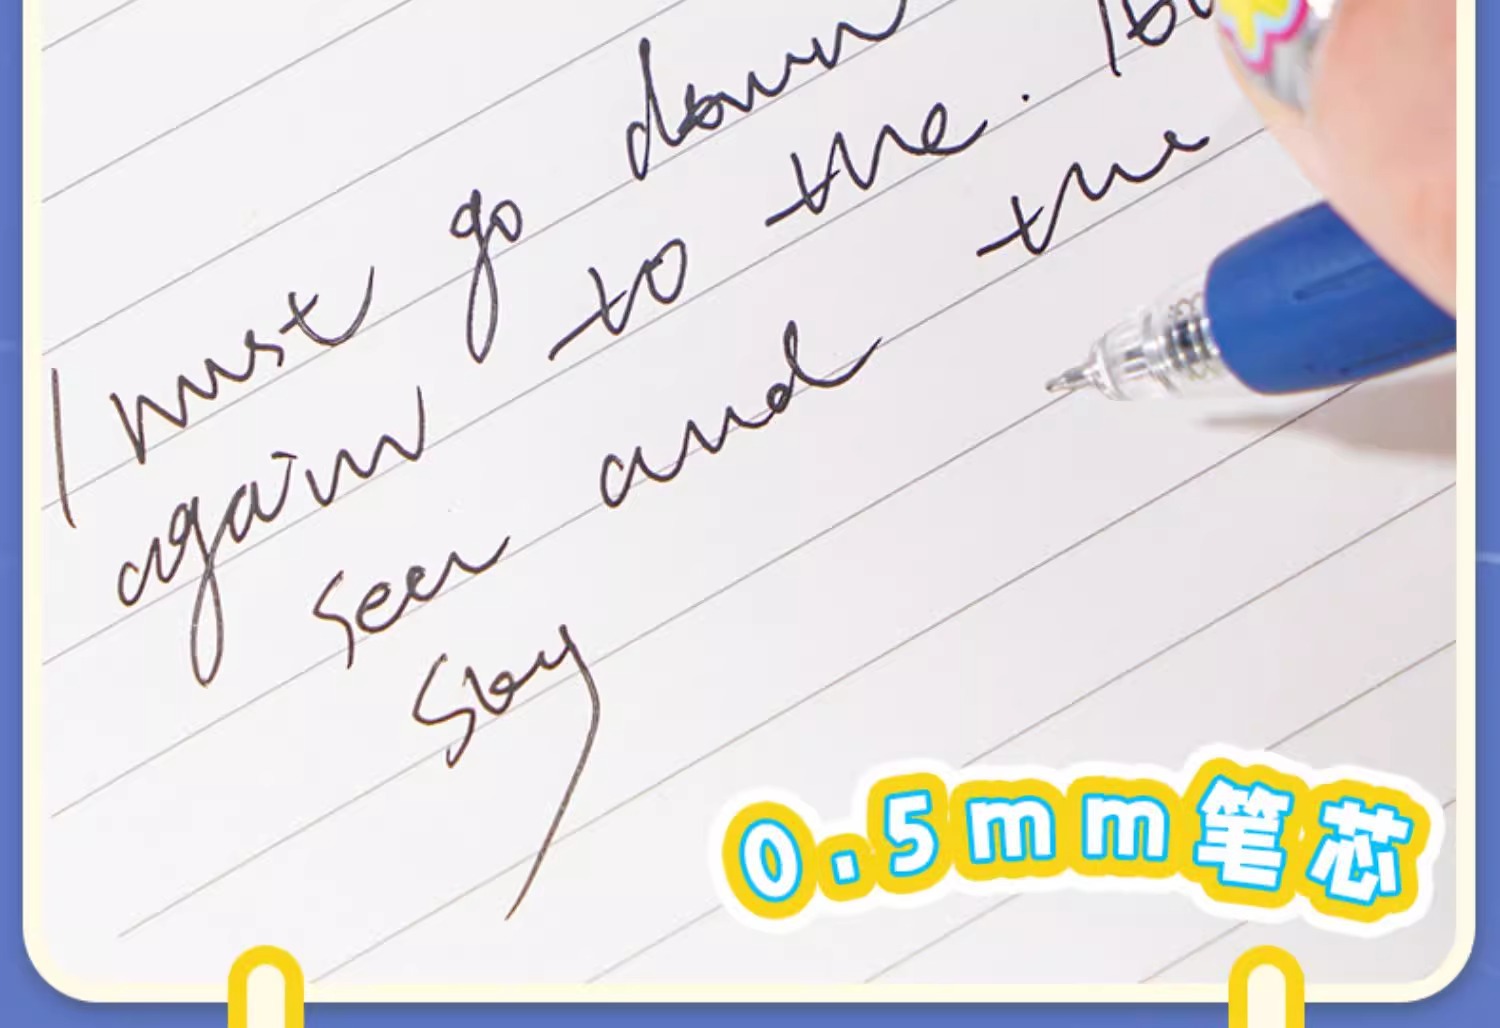 I must go down
again to the.
seer and the
Sky
0.5mm笔芯